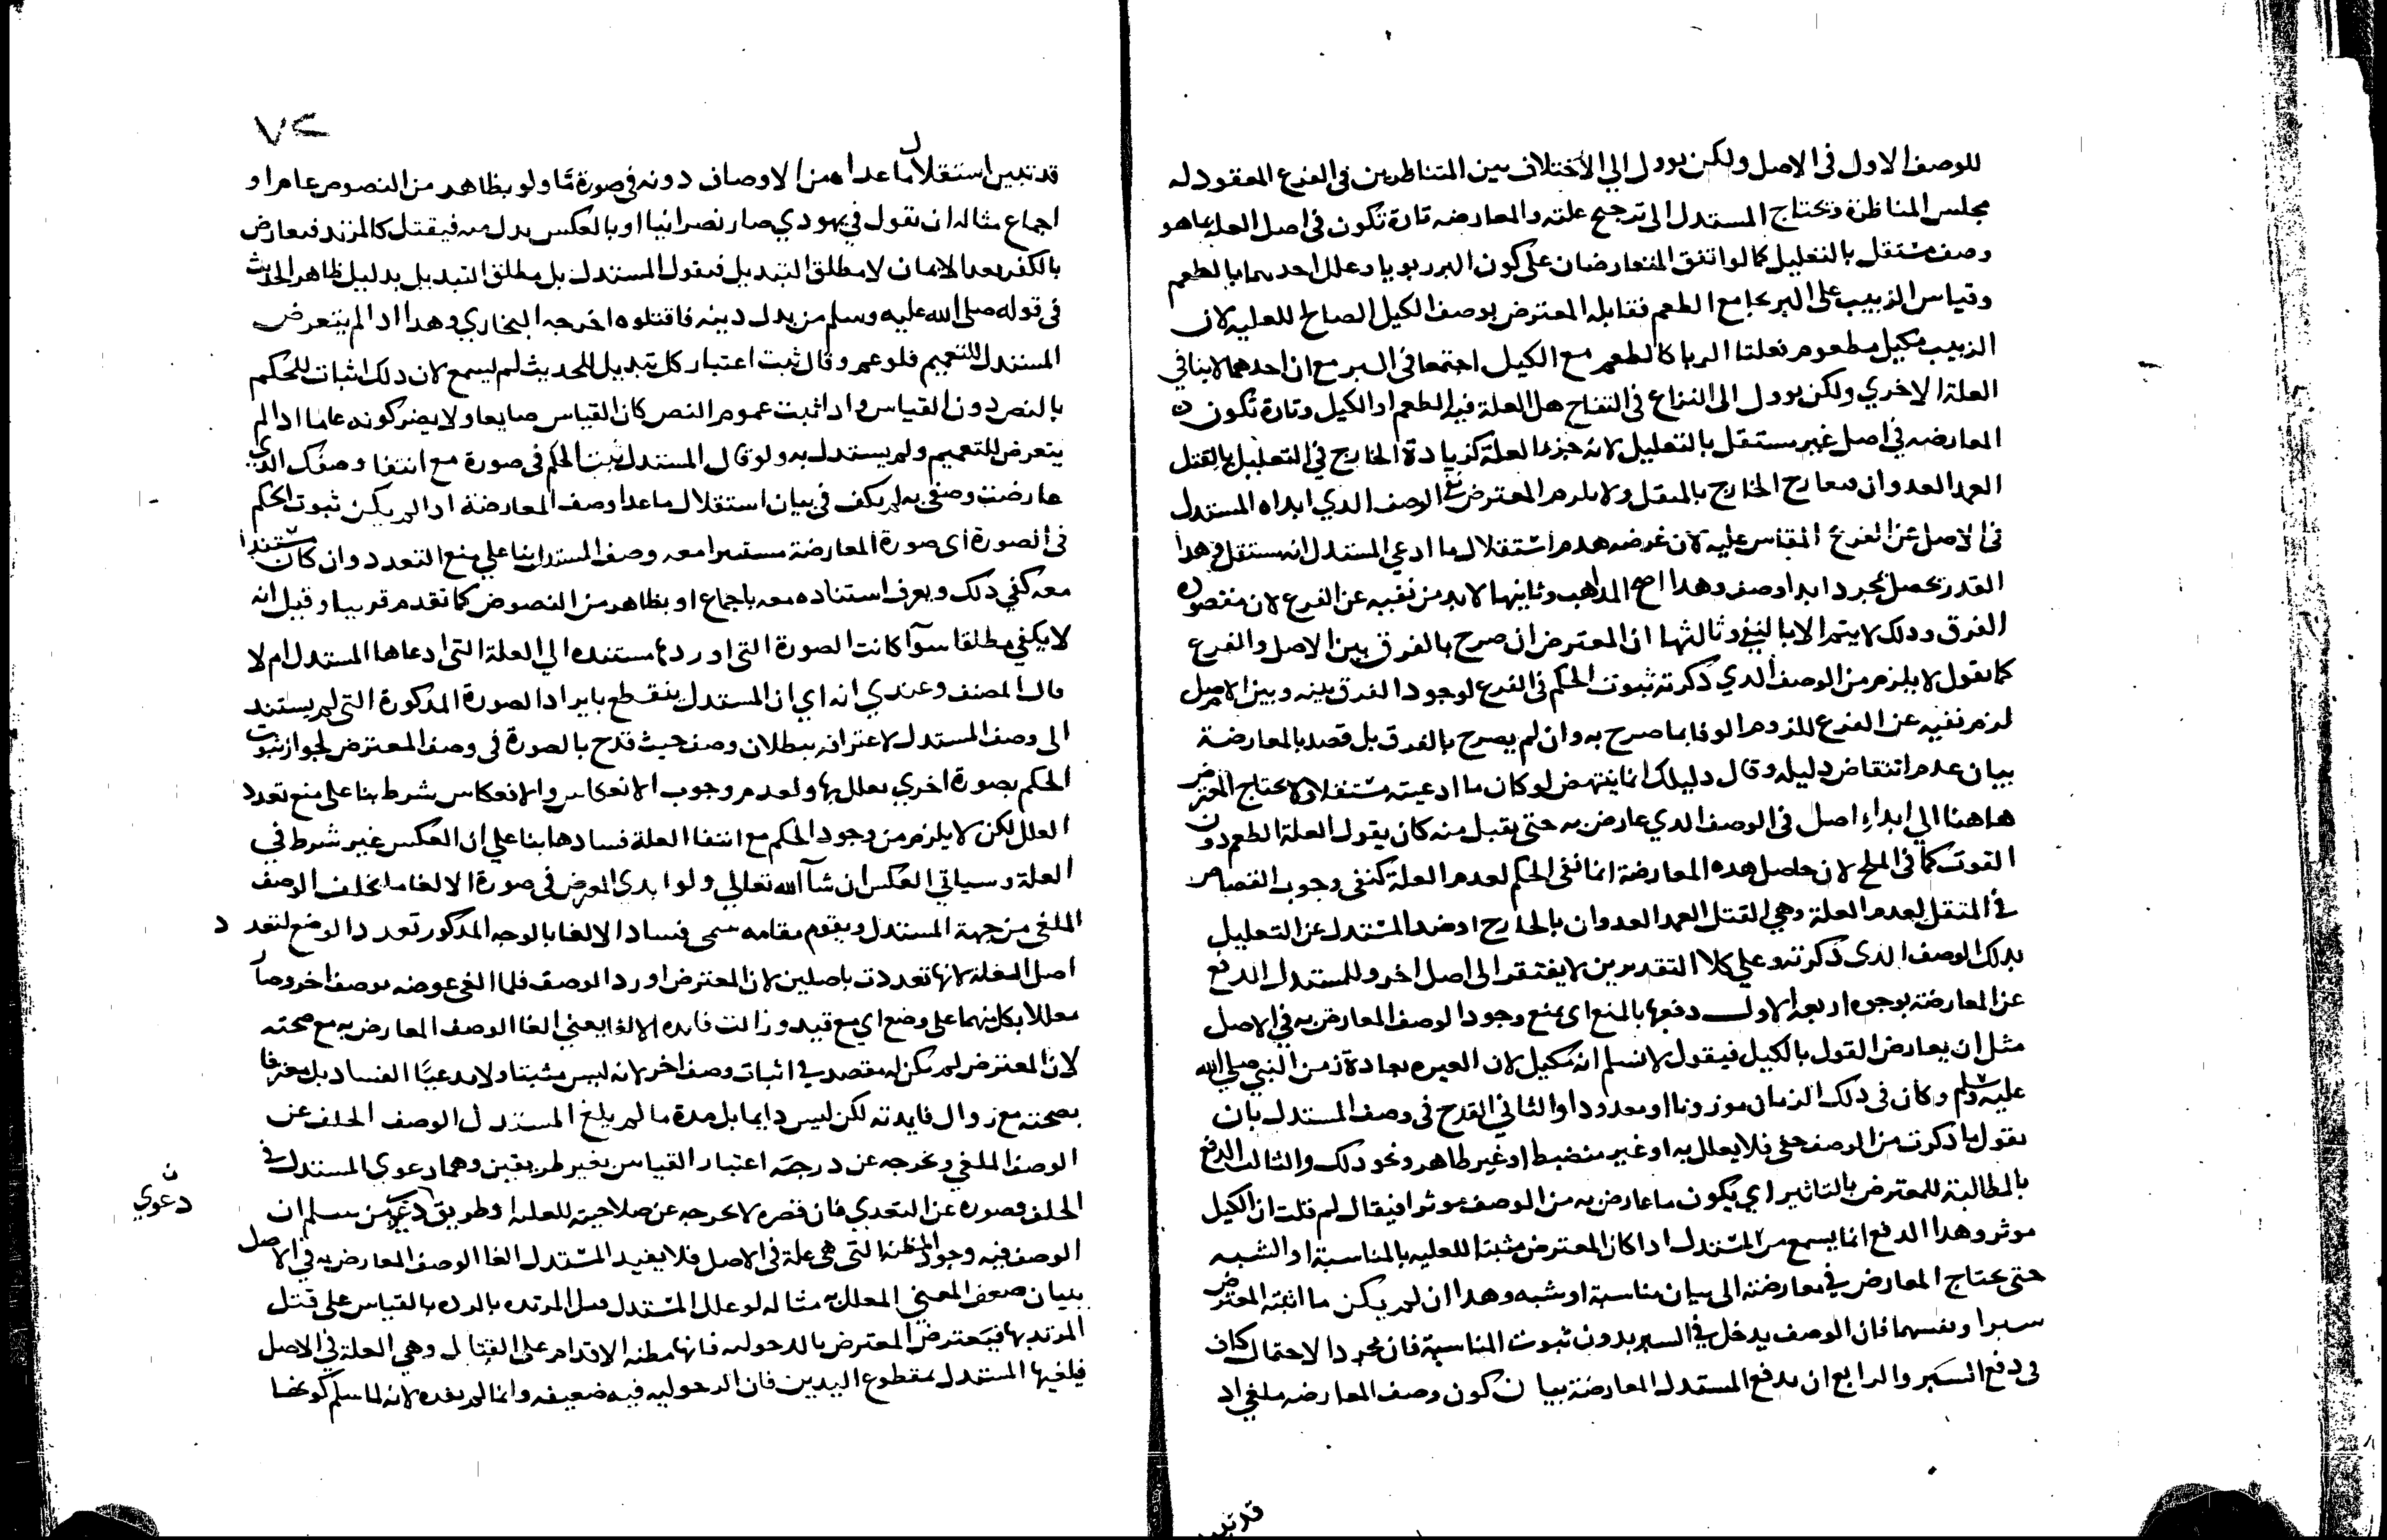 للوصف الاول في الاصل ولكن يوول الي الاختلاف بين المتناظرين في الفرع المعقود له
مجلس المناظرة ويحتاج المستدل الى ترجيح علته والمعارضه تارة تكون في اصل العله بما هو
وصف مستقل بالتعليل كما لو اتفق المتعارضان على كون البر ربويا وعلل احدهما بالطعم
وقياس الزبيب على البر بجامع الطعم فقابله المعترض بوصف الكيل الصالح للعليه لان
الزبيب مكيل مطعوم فعلتا الربا كالطعم مع الكيل اجتمعا في البر مع ان احدهما لا ينافي
العلة الاخري ولكن يوول الى النزاع في التفاح هل العلة فيه الطعم او الكيل وتارة تكون
المعارضه في اصل غير مستقل بالتعليل لانه جزء العلة كزيادة الخارج في التعليل بالقتل
العمد العدوان بالخارج بالمثقل ولا يلزم المعترض نفي الوصف الدي ابداه المستدل
في الاصل عن الفرع المقاس عليه لان غرضه هدم استقلال ما ادعي المستدل انه مستقل وهدا
القدر يحصل بمجرد ابدا وصف وهدا اصح المداهب وثانيها لا بد من نفيه عن الفرع لان مقصوده
الفرق ودلك لا يتم الا بالنفي وثالثها ان المعترض ان صرح بالفرق بين الاصل والفرع
كما يقول لا يلزم من الوصف الدي ذكرته ثبوت الحكم في الفرع لوجود الفرق بينه وبين الاصل
لزم نفيه عن الفرع للزوم الوفا بما صرح به وان لم يصرح بالفرق بل قصد بالمعارضة
بيان عدم انتقاض دليله وقال دليلك انما ينتهض لو كان ما ادعيته مستقلا ولا يحتاج المعترض
هاهنا الي ابداء اصل في الوصف الدي عارض به حتى يقبل منه كان يقول العلة الطعم دون
القوت كما في الملح لان حاصل هده المعارضة انما نفي الحكم لعدم العلة كنفي وجوب القصاص
في المثقل لعدم العلة وهي القتل العمد العدوان بالجارح او صد المستدل عن التعليل
بدلك الوصف الدى ذكرته وعلي كلا التقديرين لا يفتقر الى اصل اخر وللمستدل الدفع
عن المعارضة بوجوه اربعه الاول دفعها بالمنع اى بمنع وجود الوصف المعارض به في الاصل
مثل ان يعارض القول بالكيل فيقول لا نسلم انه مكيل لان العبره بعادة زمن النبي صلي الله
عليه وسلم وكان في دلك الزمان موزونا او معدودا والثاني القدح في وصف المستدل بان
يقول ما دكرت من الوصف خفي فلا يعلل به او غير منضبط او غير ظاهر ونحو دلك والثالث الدفع
بالمطالبة للمعترض بالتاثير اي بكون ما عارض به من الوصف موثرا فيقال لم قلت ان الكيل
موثر وهدا الدفع انما يسمع من المستدل ادا كان المعترض مثبتا للعليه بالمناسبة او الشبه
حتى يحتاج المعارض في معارضته الى بيان مناسبة او شبه وهدا ان لم يكن ما اثبته المعترض
سبرا وتقسيما فان الوصف يدخل في السبر بدون ثبوت المناسبة فان مجرد الاحتمال كاف
في دفع السبر والرابع ان يدفع المستدل المعارضة ببيان كون وصف المعارضه ملغي اد
قد تبين
٧٢
قد تبين استقلال ما عداه من الاوصاف دونه في صورة مّا ولو بظاهر من النصوص عام او
اجماع مثاله ان تقول في يهودي صار نصرانيا او بالعكس بدل دينه فيقتل كالمرتد فيعارض
بالكفر بعد الايمان لا مطلق التبديل فيقول المستدل بل مطلق التبديل بدليل ظاهر الحديث
في قوله صلى الله عليه وسلم من بدل دينه فاقتلوه اخرجه البخاري وهدا ادا لم يتعرض
المستدل للتعميم فلو عمم وقال ثبت اعتبار كل تبديل للحديث لم يسمع لان دلك اثبات للحكم
بالنص دون القياس وادا ثبت عموم النص كان القياس ضايعا ولا يضر كونه عاما ادا لم
يتعرض للتعميم ولم يستدل به ولو قال المستدل ثبت الحكم في صورة مع انتفا وصفك الدي
عارضت وصفي به لم يكف في بيان استقلال ما عدا وصف المعارضة ادا لم يكن ثبوت الحكم
في الصورة اى صورة المعارضة معه وصف المستدل بنا علي منع التعدد وان كان مستندا
معه كفي دلك ويعرف استناده معه باجماع او بظاهر من النصوص كما تقدم قريبا وقيل انه
لا يكفي مطلقا سوآ كانت الصورة التي اوردها مستنده الي العلة التي ادعاها المستدل ام لا
قال المصنف وعندي انه اي ان المستدل ينقطع بايراد الصورة المدكورة التي لم يستند
الى وصف المستدل لاعترافه ببطلان وصفه حيث قدح بالصورة في وصف المعترض لجواز ثبوت
الحكم بصورة اخري يعلل بها ولعدم وجوب الانعكاس والانعكاس شرط بنا على منع تعدد
العلل لكن لا يلزم من وجود الحكم مع انتفا العلة فسادها بنا علي ان العكس غير شرط في
العلة وسياتي العكس ان شآ الله تعالي ولو ابدى المعترض في صورة الالغا ما يخلف الوصف
الملغي من جهة المستدل ويقوم مقامه سمى فساد الالغا بالوجه المدكور تعدد الوضع لتعدد
اصل العلة لانها تعددت باصلين لان المعترض اورد الوصف فلما الغي عوضه بوصف اخر وصار
معللا بكل منهما على وضع اي مع قيد وزالت فايدة الالغا يعني الغا الوصف المعارض به مع صحته
لان المعترض لم يكن له مقصد في اثبات وصف اخر لانه ليس مثبتا ولا مدعيًا الفساد بل معترفا
بصحته مع زوال فايدته لكن ليس دايما بل مدة ما لم يلغ المستدل الوصف الخلف عن
الوصف الملغي ويخرجه عن درجة اعتبار القياس بغير طريقين وهما دعوي المستدل في
الخلف قصوره عن التعدي فان قصره لا يخرجه عن صلاحيته للعلية وطريق دعوي من سلم ان
دعوي
الوصف فيه وجود المظنة التي هي علة في الاصل فلا يفيد المستدل الغا الوصف المعارض به في الاصل
ببيان ضعف المعني المعلل به مثاله لو علل المستدل قتل المرتده بالرده بالقياس على قتل
المرتد بها فيعترض المعترض بالرجولية فانها مظنة الاقدام على القتال وهي العلة في الاصل
فيلغيها المستدل بمقطوع اليدين فان الرجوليه فيه ضعيفه وانما لم يفده لانه لما سلم كونها